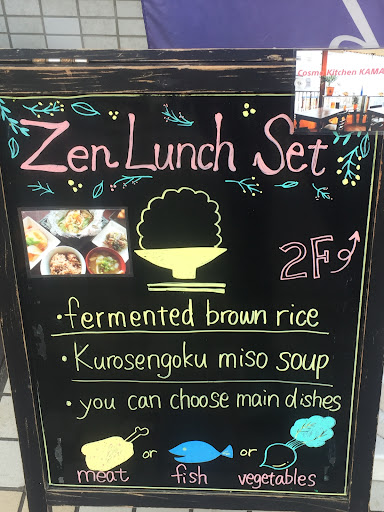 Cosme Kitchen KAMA
Zen Lunch Set
2F
・fermented brown rice
・Kurosengoku miso soup
・you can choose main dishes
or or
meat fish vegetables